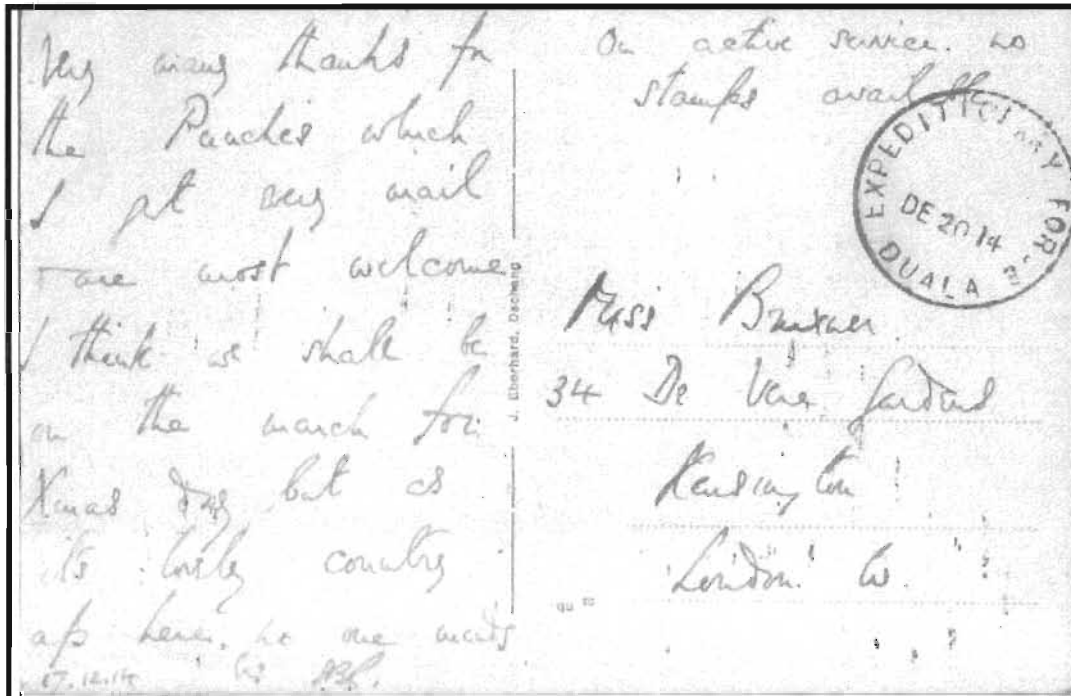 Very many thanks for
the Punches which
I get every mail
& are most welcome
I think we shall be
on the march for
Xmas day but as
its lovely country
up here. no one minds
17.12.14
On active service. no
stamps available
EXPEDITIONARY FORCE
DE 20 14
DUALA
Miss Bruxner
34 De Vere Gardens
Kensington
London W.
J. Eberhard, Dschang